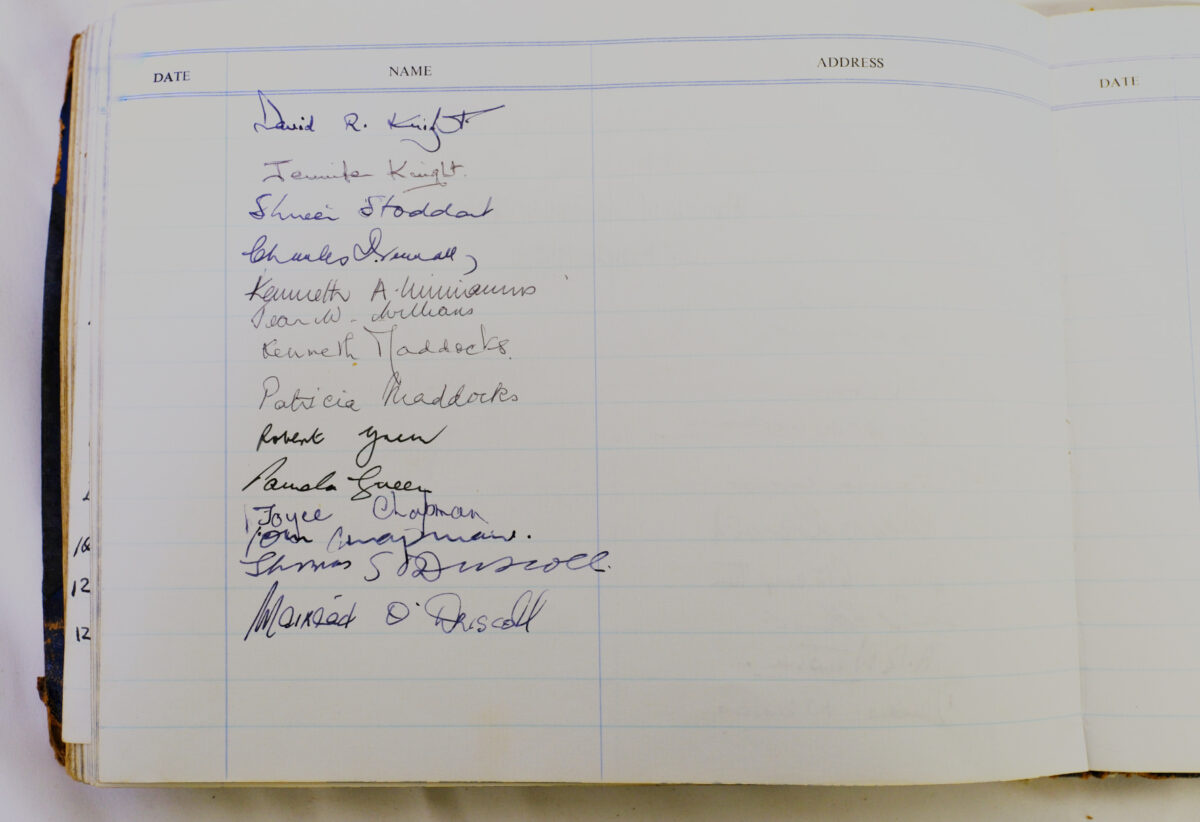 DATE NAME ADDRESS DATE
David R. Knight
Jennifer Knight.
Stoddart
Charles
Kenneth A.
Jean W. Williams
Kenneth Maddocks.
Patricia Maddocks
Robert Green
Pamela Green
Joyce Chapman
Tom Chapman.
Thomas S O'Driscoll.
Mairéad O'Driscoll
12
12